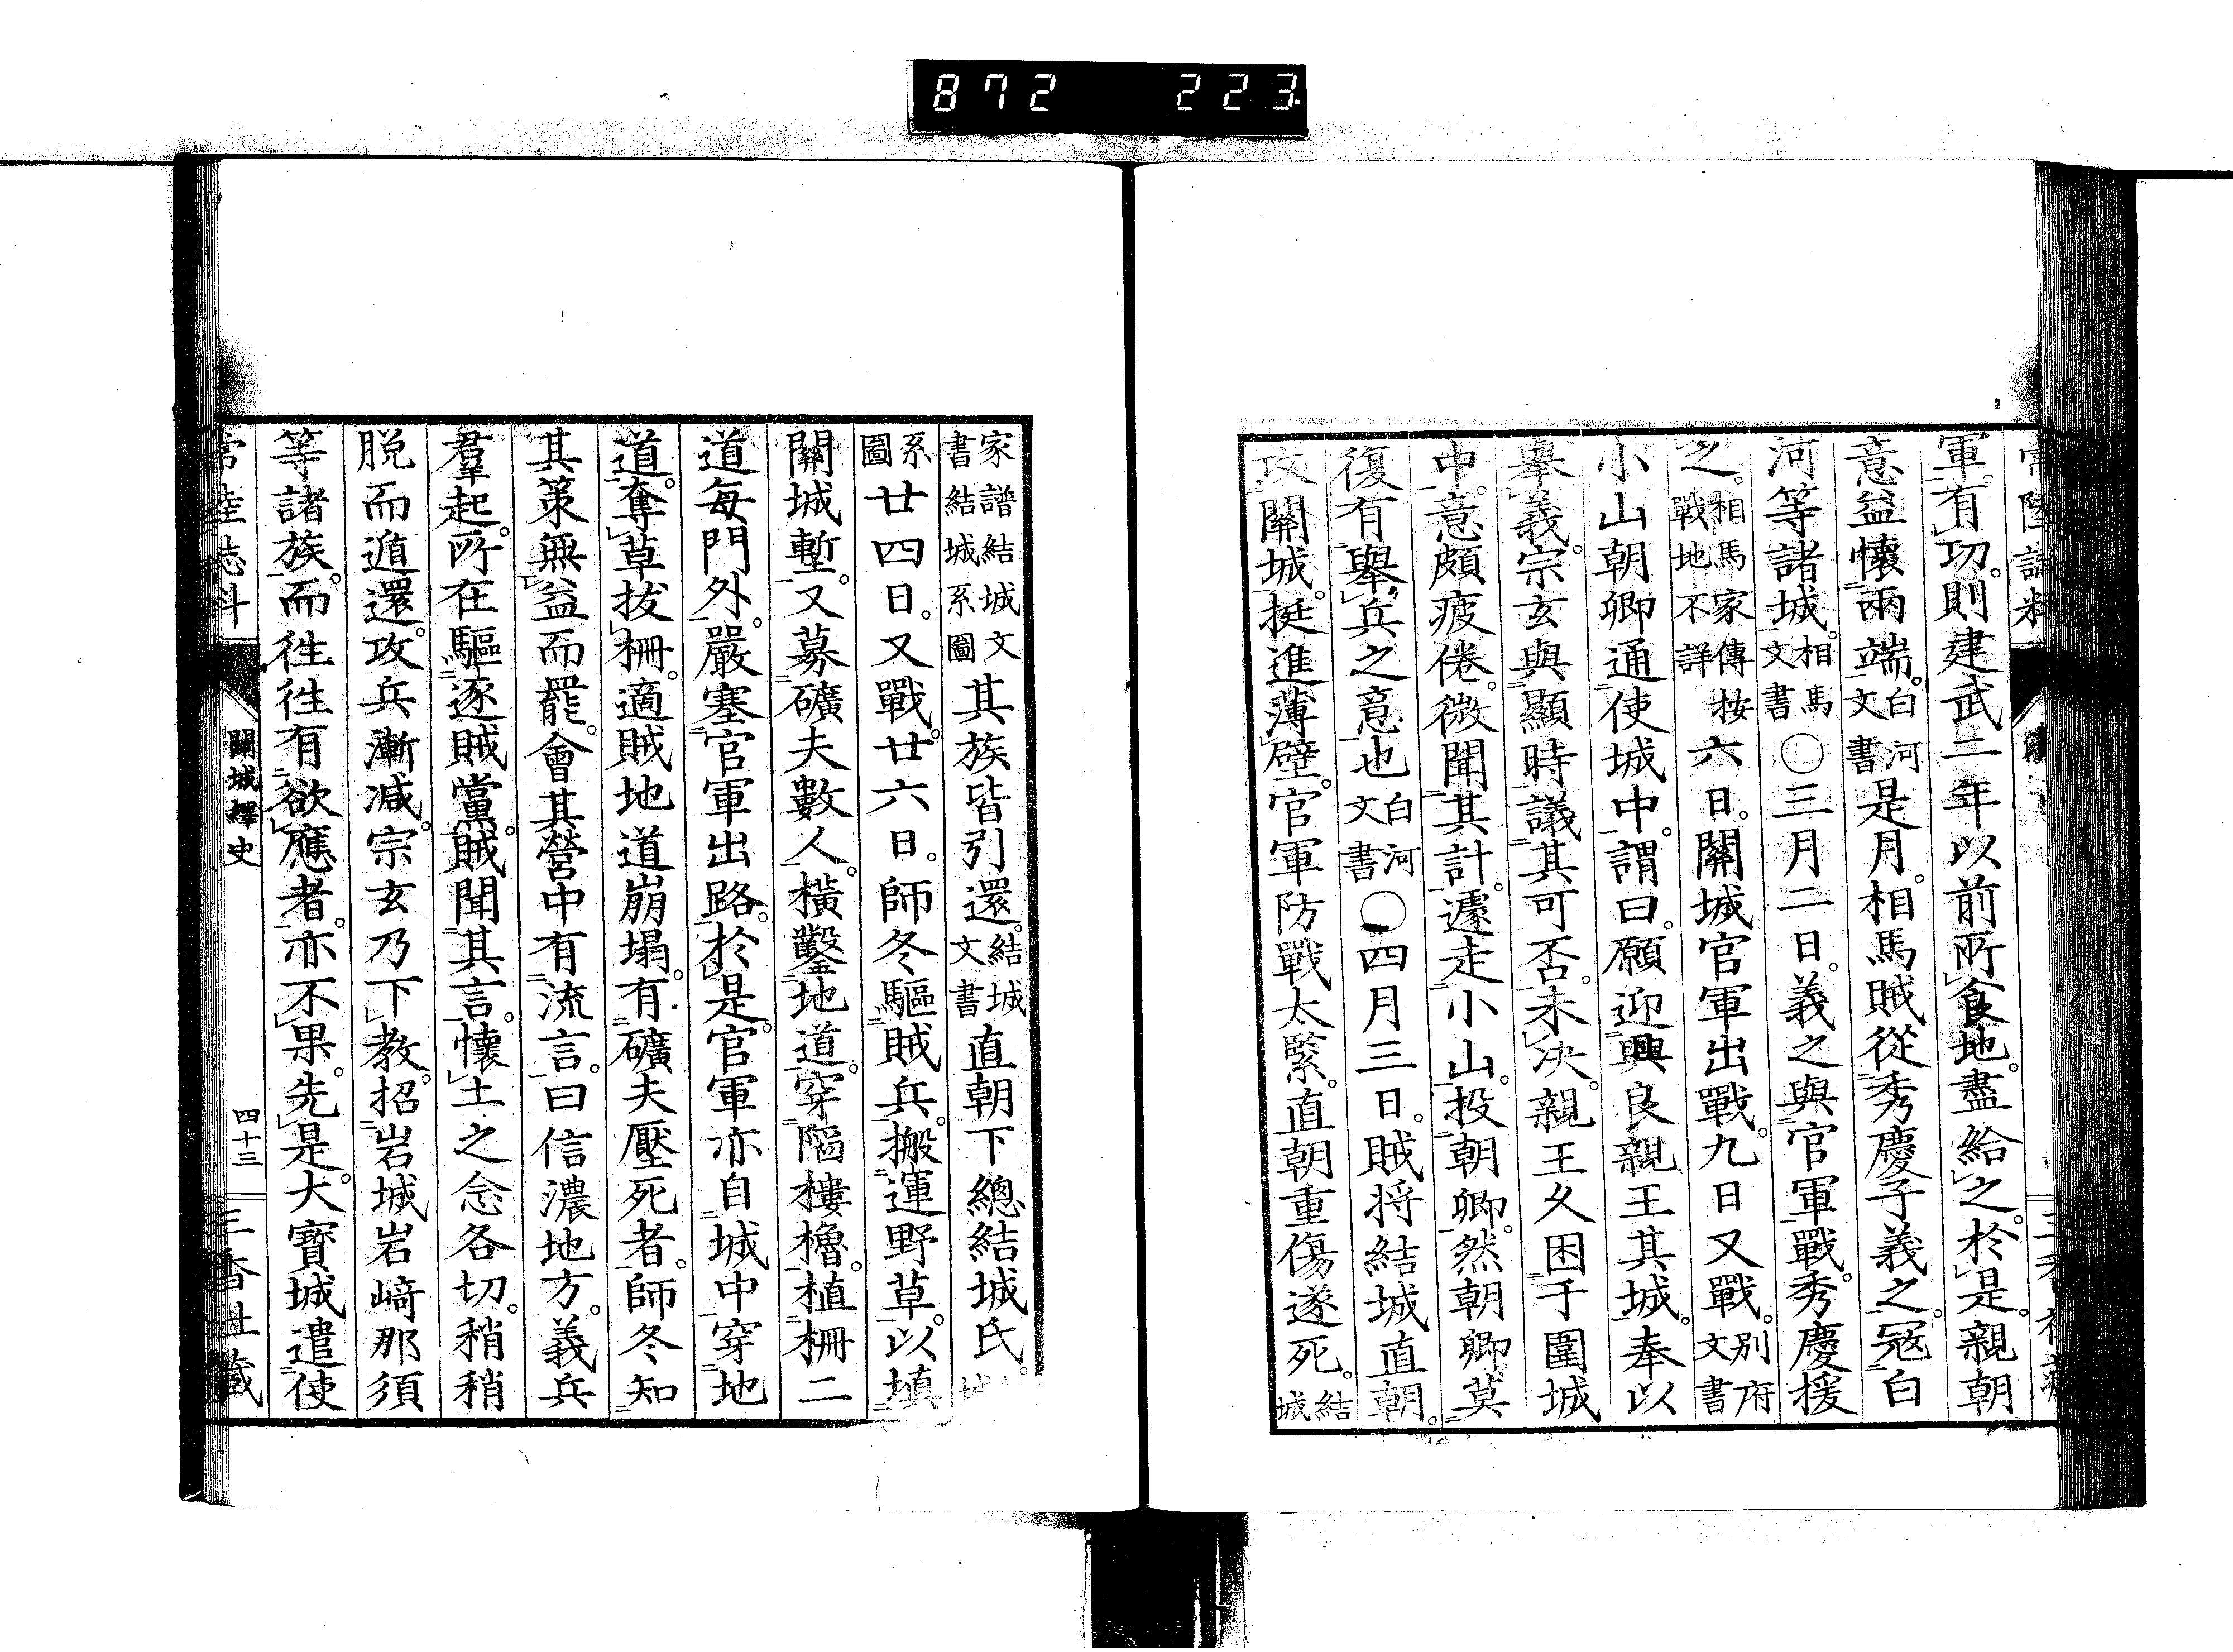 872 223
軍。有功。則建武二年以前所食地。盡給之。於是。親朝
意益懷兩端。白河文書是月。相馬賊從秀慶子義之。冦白
河等諸城。相馬文書〇三月二日。義之與官軍戰。秀慶援
之。相馬家傳按戰地不詳六日。關城官軍出戰。九日又戰。別府文書
小山朝卿通使城中。謂曰。願迎興良親王其城。奉以
擧義。宗玄與顯時議其可否。未决。親王久困于圍城
中。意頗疲倦。微聞其計。遽走小山。投朝卿。然朝卿莫
復有擧兵之意也白河文書〇四月三日。賊将結城直朝。
攻關城。挺進薄壁。官軍防戰太緊。直朝重傷遂死。結城
家譜結城文書結城系圖其族皆引還。結城文書直朝下總結城氏。
系圖廿四日。又戰。廿六日。師冬驅賊兵。搬運野草。以填
關城塹。又募礦夫數人。橫鑿地道。穿陷樓櫓。植柵二
道每門外。嚴塞官軍出路。於是。官軍亦自城中穿地
道。奪草拔柵。適賊地道崩塌。有礦夫壓死者。師冬知
其策無益而罷。會其營中有流言。曰信濃地方。義兵
羣起。所在驅逐賊黨。賊聞其言。懷土之念各切。稍稍
脱而遁還。攻兵漸减。宗玄乃下教。招岩城岩﨑那須
等諸族。而徃徃有欲應者。亦不果。先是。大寳城遣使
常陸志料
關城繹史
四十三
三香社藏